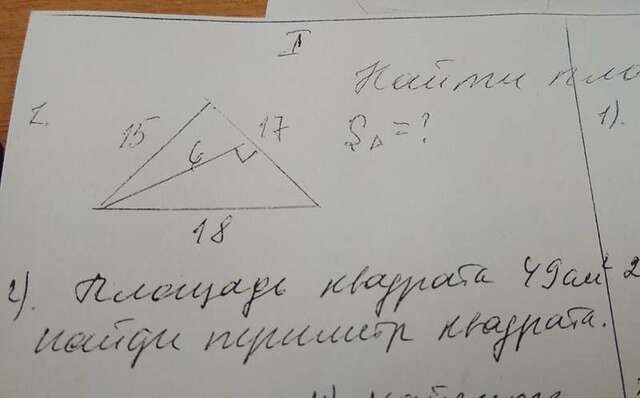 I
Найти пло
1.
15
6
17
S△=?
1).
18
2). Площадь квадрата 49 см² 2
найди периметр квадрата.